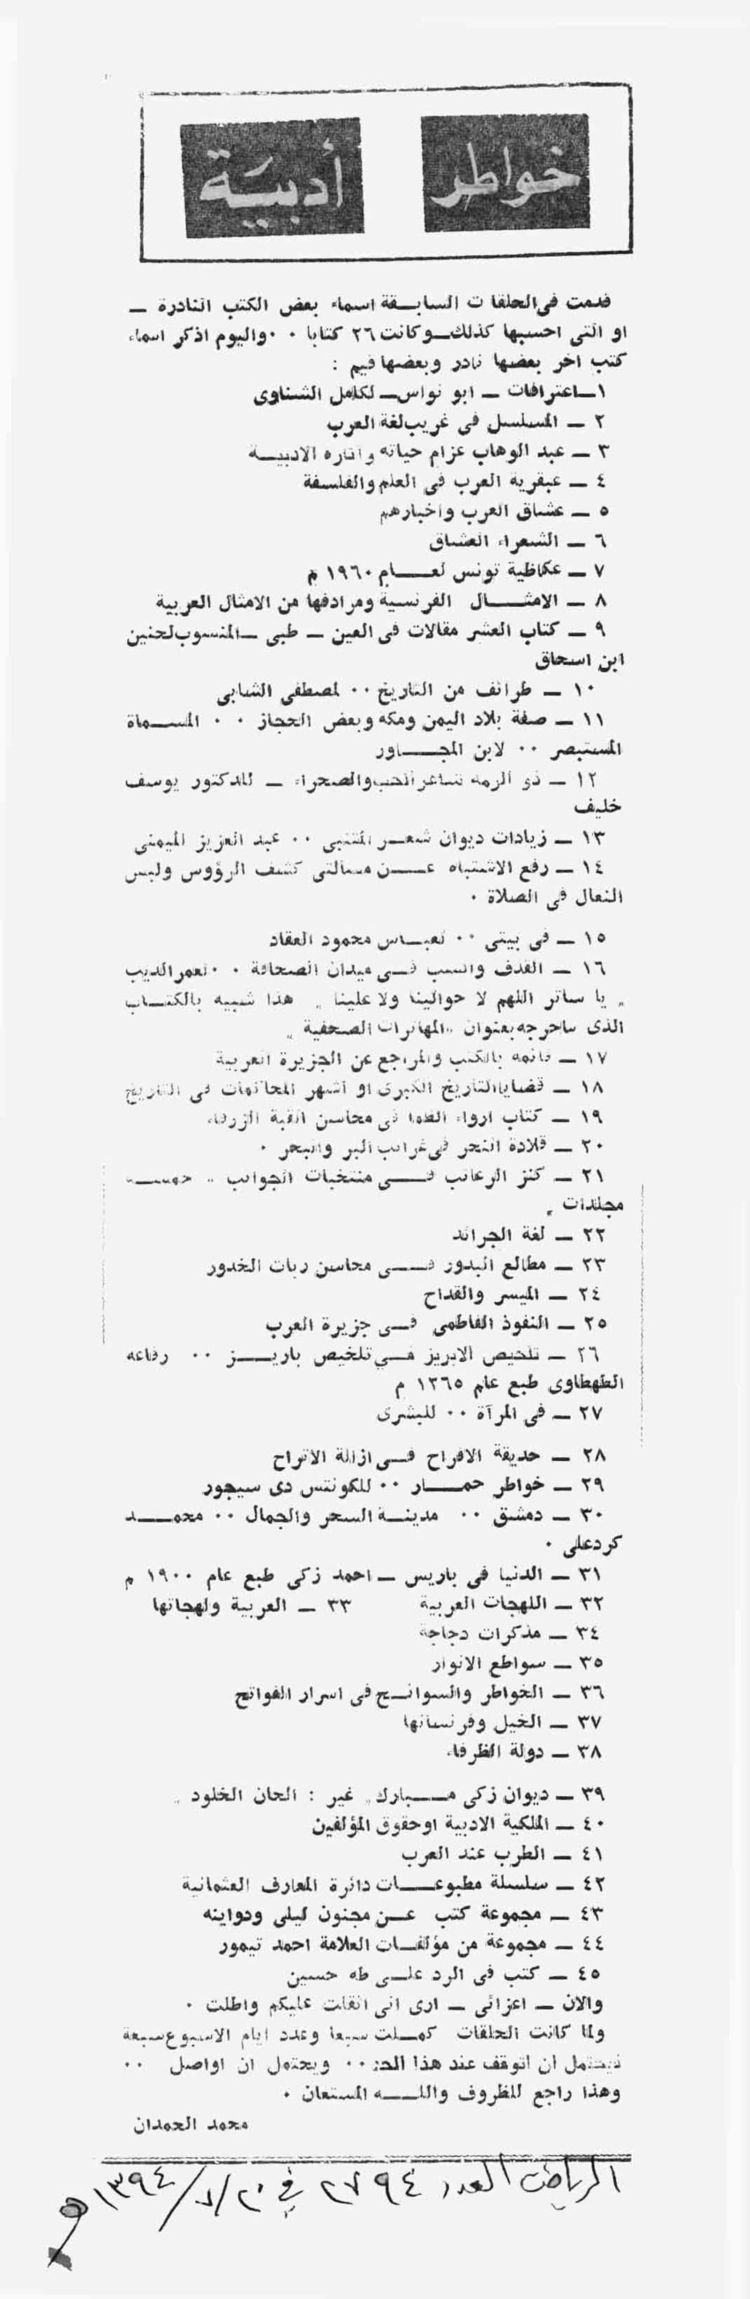 خواطر أدبية
قدمت فى الحلقات السابقة اسماء بعض الكتب النادرة —
او التى احسبها كذلك — وكانت ٢٦ كتابا ٠٠ واليوم اذكر اسماء
كتب اخر بعضها نادر وبعضها قيم :
١ — اعترافات — ابو نواس — لكامل الشناوى
٢ — المسلسل فى غريب لغة العرب
٣ — عبد الوهاب عزام حياته واثاره الادبية
٤ — عبقرية العرب فى العلم والفلسفة
٥ — عشاق العرب واخبارهم
٦ — الشعراء العشاق
٧ — عكاظية تونس لعام ١٩٦٠ م
٨ — الامثال الفرنسية ومرادفها من الامثال العربية
٩ — كتاب العشر مقالات فى العين — طبى — المنسوب لحنين
ابن اسحاق
١٠ — طرائف من التاريخ ٠٠ لمصطفى الشابى
١١ — صفة بلاد اليمن ومكه وبعض الحجاز ٠٠ المسماة
المستبصر ٠٠ لابن المجاور
١٢ — ذو الرمه شاعر الحب والصحراء — للدكتور يوسف
خليف
١٣ — زيادات ديوان شعر المتنبى ٠٠ عبد العزيز الميمنى
١٤ — رفع الاشتباه عن مسالتى كشف الرؤوس ولبس
النعال فى الصلاة ٠
١٥ — فى بيتى ٠٠ لعباس محمود العقاد
١٦ — القذف والسب فى ميدان الصحافة ٠٠ لعمر الديب
„ يا ساتر اللهم لا حوالينا ولا علينا „ هذا شبيه بالكتاب
الذى ساخرجه بعنوان „ المهاترات الصحفية „
١٧ — قائمه بالكتب والمراجع عن الجزيرة العربية
١٨ — قضايا التاريخ الكبرى او اشهر المحاكمات فى التاريخ
١٩ — كتاب ارواء الظما فى محاسن القبة الزرقاء
٢٠ — قلادة النحر فى غرائب البر والبحر ٠
٢١ — كنز الرغائب فى منتخبات الجوائب „
مجلدات „
٢٢ — لغة الجرائد
٢٣ — مطالع البدور فى محاسن ربات الخدور
٢٤ — الميسر والقداح
٢٥ — النفوذ الفاطمى فى جزيرة العرب
٢٦ — تلخيص الابريز فى تلخيص باريز ٠٠ رفاعه
الطهطاوى طبع عام ١٢٦٥ م
٢٧ — فى المرآة ٠٠ للبشرى
٢٨ — حديقة الافراح فى ازالة الاتراح
٢٩ — خواطر حمار ٠٠ للكونتس دى سيجور
٣٠ — دمشق ٠٠ مدينة السحر والجمال ٠٠ محمد
كرد على ٠
٣١ — الدنيا فى باريس — احمد زكى طبع عام ١٩٠٠ م
٣٢ — اللهجات العربية ٣٣ — العربية ولهجاتها
٣٤ — مذكرات دجاجة
٣٥ — سواطع الانوار
٣٦ — الخواطر والسوانح فى اسرار الفواتح
٣٧ — الخيل وفرسانها
٣٨ — دولة الظرفاء
٣٩ — ديوان زكى مبارك „ غير : الحان الخلود „
٤٠ — الملكية الادبية او حقوق المؤلفين
٤١ — الطرب عند العرب
٤٢ — سلسلة مطبوعات دائرة المعارف العثمانية
٤٣ — مجموعة كتب عن مجنون ليلى ودواينه
٤٤ — مجموعة من مؤلفات العلامة احمد تيمور
٤٥ — كتب فى الرد على طه حسين
والان — اعزائى — ارى انى اثقلت عليكم واطلت ٠
ولما كانت الحلقات كملت سبعا وعدد ايام الاسبوع سبعة
فيحتمل ان اتوقف عند هذا الحد ٠٠ ويحتمل ان اواصل ٠٠
وهذا راجع للظروف والله المستعان ٠
محمد الحمدان
الرياض العدد ٢٧٩٤ في ٢٠/٧/١٣٩٤هـ